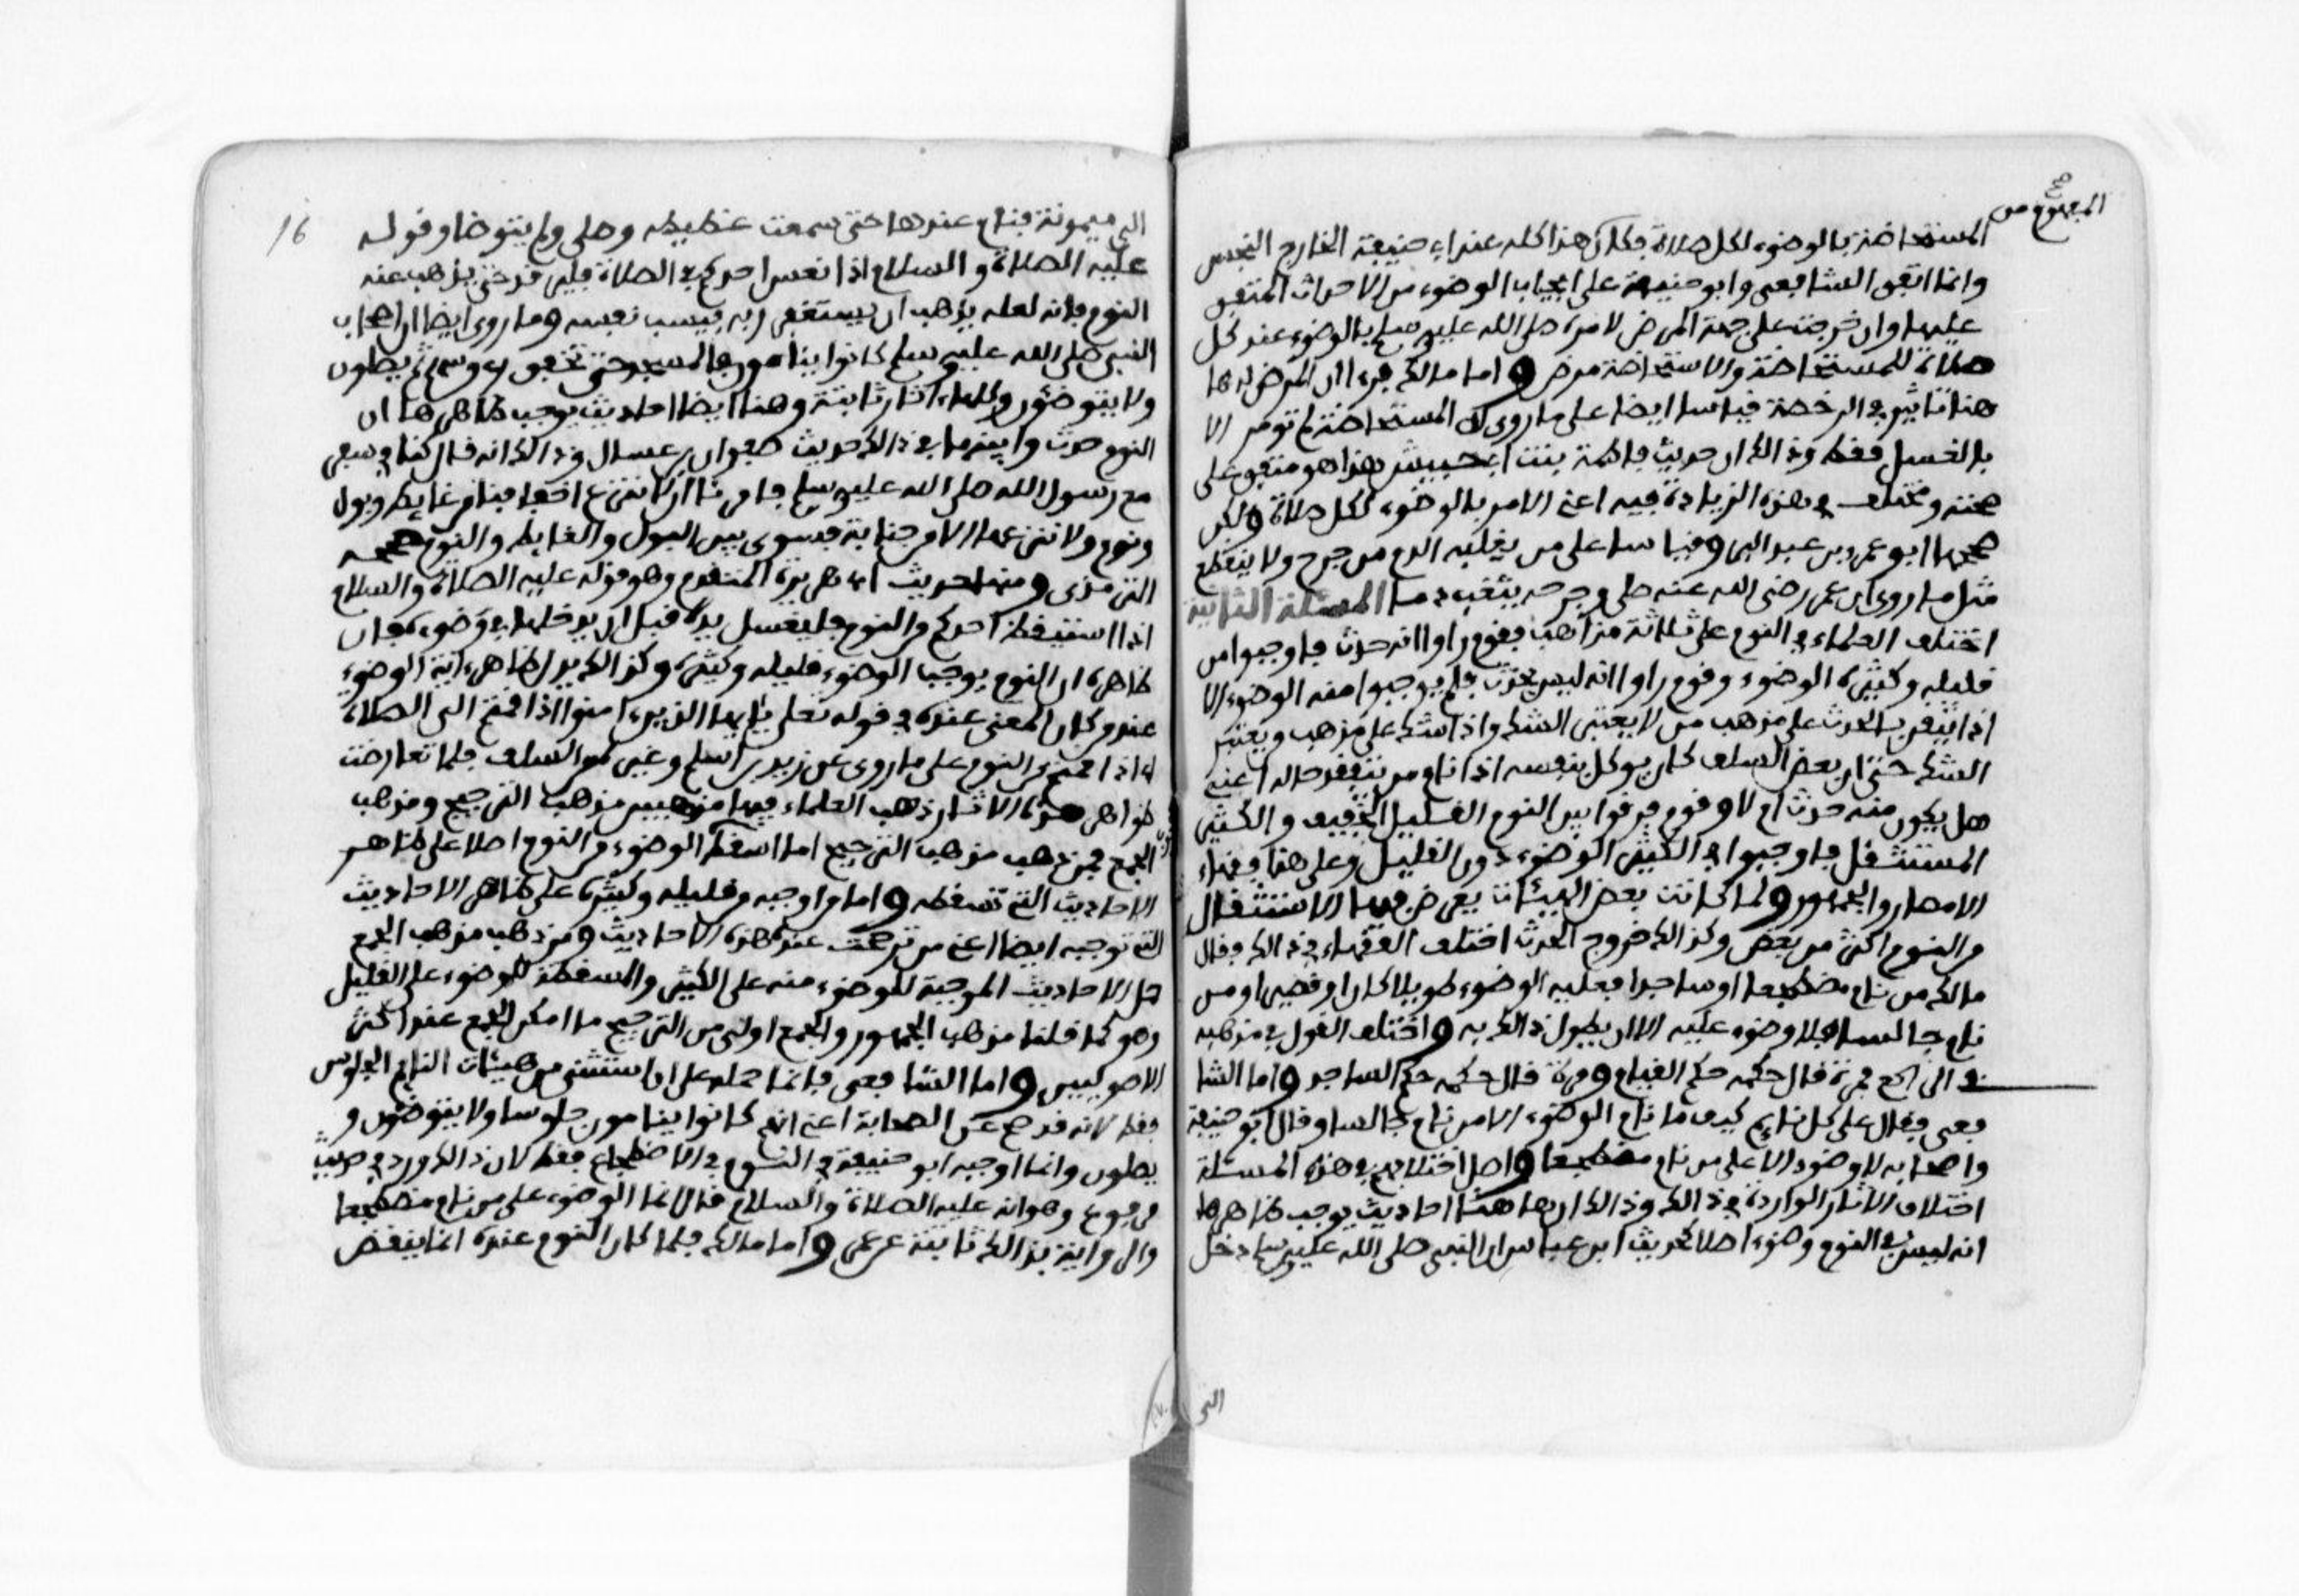 المفهوم من صح
المستحاضة بالوضوء لكل صلاة فكان هذا كله عند ابي حنيفة الخارج النجس
وانما اتفق الشافعي وابو حنيفة على ايجاب الوضوء من الاحداث المتفق
عليها وان خرجت على جهة المرض لامره صلى الله عليه وسلم بالوضوء عند كل
صلاة للمستحاضة والاستحاضة مرض واما مالك فرءا ان المرض له ها
هنا تاثير في الرخصة قياسا ايضا على ما روى ان المستحاضة لم تومر الا
بالغسل فقط وذالك ان حديث فاطمة بنت ابي حبيش هذا هو متفق على
صحته ومختلف في هذه الزيادة فيه اعني الامر بالوضوء لكل صلاة ولكن
صححها ابو عمر بن عبد البر وقياسا على من يغلبه الدم من جرح ولا ينقطع
مثل ما روى ان عمر رضي الله عنه صلى وجرحه يثعب دما المسئلة الثانية
اختلف العلماء في النوم على ثلاثة مذاهب فقوم راوا انه حدث فاوجبوا من
قليله وكثيره الوضوء وقوم راوا انه ليس بحدث فلم يوجبوا منه الوضوء الا
اذا تيقن بالحدث على مذهب من لا يعتبر الشك واذا شك على مذهب من يعتبر
الشك حتى ان بعض السلف كان يوكل بنفسه اذا نام من يتفقد حاله اعني
هل يكون منه حدث ام لا وقوم فرقوا بين النوم القليل الخفيف والكثير
المستثقل فاوجبوا في الكثير الوضوء دون القليل وعلى هذا فقهاء
الامصار والجمهور ولما كانت بعض الهيئات يعرض فيها الاستثقال
من النوم اكثر من بعض وكذالك خروج الحدث اختلف الفقهاء في ذالك فقال
مالك من نام مضطجعا او ساجدا فعليه الوضوء طويلا كان او قصيرا ومن
نام جالسا فلا وضوء عليه الا ان يطول ذالك به واختلف القول في مذهبه
في الراكع فمرة قال حكمه حكم القيام ومرة قال حكمه حكم الساجد واما الشا
فعي فقال على كل نايم كيف ما نام الوضوء الا من نام جالسا وقال ابو حنيفة
واصحابه لا وضوء الا على من نام مضطجعا واصل اختلافهم في هذه المسئلة
اختلاف الاثار الواردة في ذالك وذالك ان هاهنا احاديث يوجب ظاهرها
انه ليس في النوم وضوء اصلا كحديث ابن عباس ان النبي صلى الله عليه وسلم دخل
الى
16
الى ميمونة فنام عندها حتى سمعت غطيطه وصلى ولم يتوضا وقوله
عليه الصلاة والسلام اذا نعس احدكم في الصلاة فليرقد حتى يذهب عنه
النوم فانه لعله يذهب ان يستغفر ربه فيسب نفسه وما روى ايضا ان اصحاب
النبي صلى الله عليه وسلم كانوا ينامون في المسجد حتى تخفق رءوسهم ثم يصلون
ولا يتوضؤون وكلها ءاثار ثابتة وهنا ايضا احاديث يوجب ظاهرها ان
النوم حدث وابينها في ذالك حديث صفوان بن عسال وذالك انه قال كنا في سفر
مع رسول الله صلى الله عليه وسلم فامرنا ان لا ننزع اخفافنا من غايط وبول
ونوم ولا ننزعها الا من جنابة فسوى بين البول والغايط والنوم صححه
الترمذي ومنها حديث ابي هريرة المتقدم وهو قوله عليه الصلاة والسلام
اذا استيقظ احدكم من النوم فليغسل يده قبل ان يدخلها في وضوءه فان
ظاهره ان النوم يوجب الوضوء قليله وكثيره وكذالك يدل ظاهر ءاية الوضوء
عند من كان المعنى عنده في قوله تعلى يايها الذين ءامنوا اذا قمتم الى الصلاة
اي اذا قمتم من النوم على ما روى عن زيد بن اسلم وغيره من السلف فلما تعارضت
ظواهر هذه الاثار ذهب العلماء فيها مذهبين مذهب الترجيح ومذهب
الجمع فمن ذهب مذهب الترجيح اما اسقط الوضوء من النوم اصلا على ظاهر
الاحاديث التي تسقطه واما اوجبه من قليله وكثيره على ظاهر الاحاديث
التي توجبه ايضا اعني من ترجحت عنده هذه الاحاديث ومن ذهب مذهب الجمع
حمل الاحاديث الموجبة للوضوء منه على الكثير والمسقطة للوضوء على القليل
وهو كما قلنا مذهب الجمهور والجمع اولى من الترجيح ما امكن الجمع عند اكثر
الاصوليين واما الشافعي فانما حمله على ان استثنى من هيئات النائم الجلوس
فقط لانه قد صح عن الصحابة اعني انهم كانوا ينامون جلوسا ولا يتوضؤن و
يصلون وانما اوجبه ابو حنيفة في النوم في الاضطجاع فقط لان ذالك ورد في حديث
مرفوع وهو انه عليه الصلاة والسلام قال انما الوضوء على من نام مضطجعا
والرواية بذالك ثابتة عن عمر واما مالك فلما كان النوم عنده انما ينقض